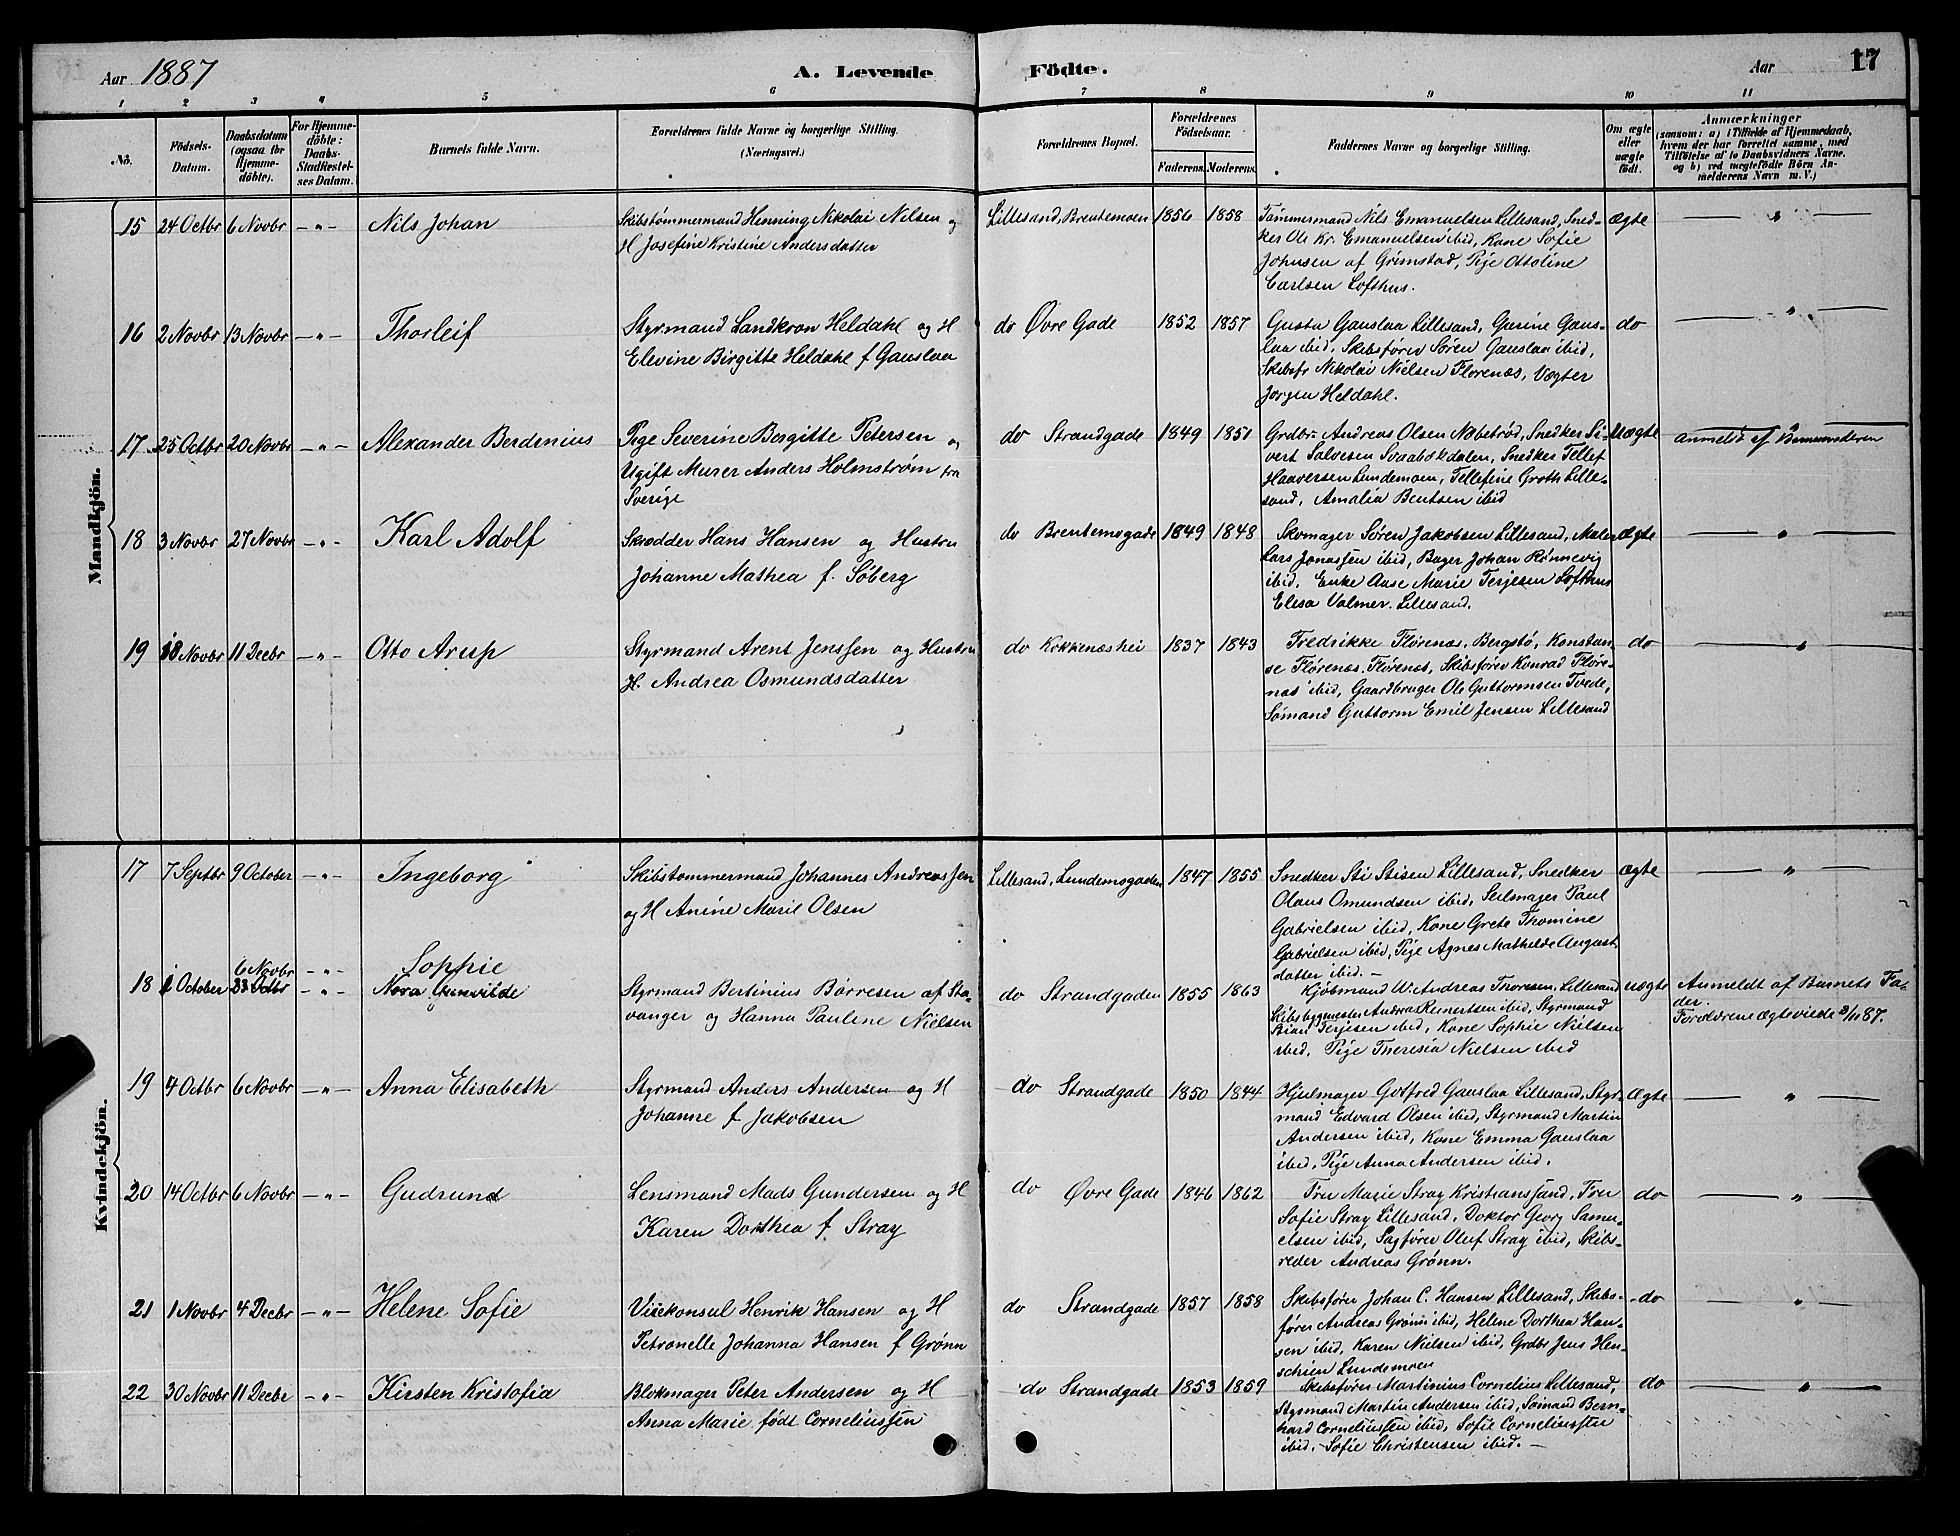 Aar 1887
A. Levende Födte.
Aar
17
1 2 3 4 5 6 7 8 9 10 11
No.
Födsels-
Datum.
Daabsdatum
(ogsaa for
Hjemme-
döbte).
For Hjemme-
döbte:
Daabs-
Stadfæstel-
ses Datum.
Barnets fulde Navn.
Forældrenes fulde Navne og borgerlige Stilling.
(Næringsvei.)
Forældrenes Bopæl.
Forældrenes
Födselsaar.
Faderens. Moderens.
Faddernes Navne og borgerlige Stilling.
Om ægte
eller
uægte
födt.
Anmærkninger
(saasom: a) i Tilfælde af Hjemmedaab,
hvem der har forrettet samme, med
Tilföielse af to Daabsvidners Navne,
og b) ved uægtefödte Börn An-
melderens Navn m. V.)
Mandkjön.
15 24 Octbr 6 Novbr -"- Nils Johan
Skibstømmermand Henning Nikolai Nilsen og
H Josefine Kristine Andersdatter
Lillesand, Brentemoen 1856 1858
Tømmermand Nils Emanuelsen Lillesand, Sned-
ker Ole Kr. Emanuelsen ibid, Kone Sofie
Johnsen af Grimstad, Pige Ottoline
Carlsen Lofthus.
ægte — " —
16 2 Novbr 13 Novbr -"- Thorleif
Styrmand Landkron Heldahl og H
Elevine Birgitte Heldahl f Gauslaa
do Øvre Gade 1852 1857
Gusta Gauslaa Lillesand, Gurine Gaus-
laa ibid, Skibsfører Søren Gauslaa ibid,
Skibsfr Nikolai Nielsen Florenæs, Vægter
Jørgen Heldahl.
do — " —
17 25 Octbr 20 Novbr -"- Alexander Berdinius
Pige Severine Bergitte Petersen og
Ugift Murer Anders Holmstrøm fra
Sverige
do Strandgade 1849 1851
Grdbr Andreas Olsen Næbstrød, Snedker Si-
vert Salvesen Svaabækdalen, Snedker Tellef
Haaversen Lundemoen, Tellefine Groth Lille-
sand, Amalia Bentsen ibid
Uægte anmeldt af
18 3 Novbr 27 Novbr -"- Karl Adolf
Skrædder Hans Hansen og Hustru
Johanne Mathea f. Søberg
do Brentemogade 1849 1848
Skomager Søren Jakobsen Lillesand, Maler
Lars Jonassen ibid, Bager Johan Rønnevig
ibid, Enke Aase Marie Terjesen Lofthus
Elisa Valmer. Lillesand.
ægte — " —
19 18 Novbr 11 Decbr -"- Otto Arup
Styrmand Arent Jenssen og Hustru
H. Andrea Osmundsdatter
do Kokkenæshei 1837 1843
Fredrikke Florenæs, Bergstø, Konstan-
se Florenæs, Florenæs, Skibsfører Konrad Flore-
næs ibid, Gaardbruger Ole Guttormsen Tvede,
Sømand Guttorm Emil Jensen Lillesand
do — " —
Kvindekjön.
17 7 Septbr 9 October -"- Ingeborg
Skibstømmermand Johannes Andreassen
og H Anine Marie Olsen
Lillesand, Lundemogaden 1847 1855
Snedker Sti Stisen Lillesand, Snedker
Olaus Osmundsen ibid, Seilmager Paul
Gabrielsen ibid, Kone Grete Thomine
Gabrielsen ibid, Pige Agnes Mathilde August
datter ibid. —
ægte — " —
6 Novbr -"- Sophie
18 1 October 23 Octbr -"- Nora Gunvilde
Styrmand Bertinius Børresen af Sta-
vanger og Hanna Pauline Nielsen
do Strandgaden 1855 1863
Kjøbmand W. Andreas Thoresen, Lillesand
Skibsbygmester Andreas Reinertsen ibid, Styrmand
Terjesen ibid, Kone Sophie Nielsen
ibid, Pige Theresia Nielsen ibid
uægte
Anmeldt af Barnets Fa-
der.
Forældrene ægteviede 3/11 87.
19 4 Octbr 6 Novbr -"- Anna Elisabeth
Styrmand Anders Andersen og H
Johanne f Jakobsen
do Strandgade 1850 1844
Hjulmager Gotfred Gauslaa Lillesand, Styr-
mand Edvard Olsen ibid, Styrmand Martin
Andersen ibid, Kone Emma Gauslaa
ibid, Pige Anna Andersen ibid.
Ægte — " —
20 14 Octbr 6 Novbr -"- Gudrund
Lensmand Mads Gundersen og H
Karen Dorthea f. Stray
do Øvre Gade 1846 1862
Fru Marie Stray Kristianssand, Fru
Sofie Stray Lillesand, Doktor Georg Samu-
elsen ibid, Sagfører Oluf Stray ibid, Skibs-
reder Andreas Grønn.
do — " —
21 1 Novbr 4 Decbr -"- Helene Sofie
Visekonsul Henrik Hansen og H
Petronelle Johanna Hansen f Grønn
do Strandgade 1857 1858
Skibsfører Johan C. Hansen Lillesand, Skibs-
fører Andreas Grønn ibid, Helene Dorthea Han-
sen ibid, Karen Nielsen ibid, Grdbr Jens Hen-
schien Lundemoen
do — " —
22 30 Novbr 11 Decbr -"- Kirsten Kristofia
Blokmager Peter Andersen og H
Anna Marie født Corneliussen
do Strandgade 1853 1859
Skibsfører Martinius Cornelius Lillesand,
Styrmand Martin Andersen ibid, Sømand Bern-
hard Corneliussen ibid, Sofie Corneliussen
ibid, Sofie Christensen ibid. —
do — " —